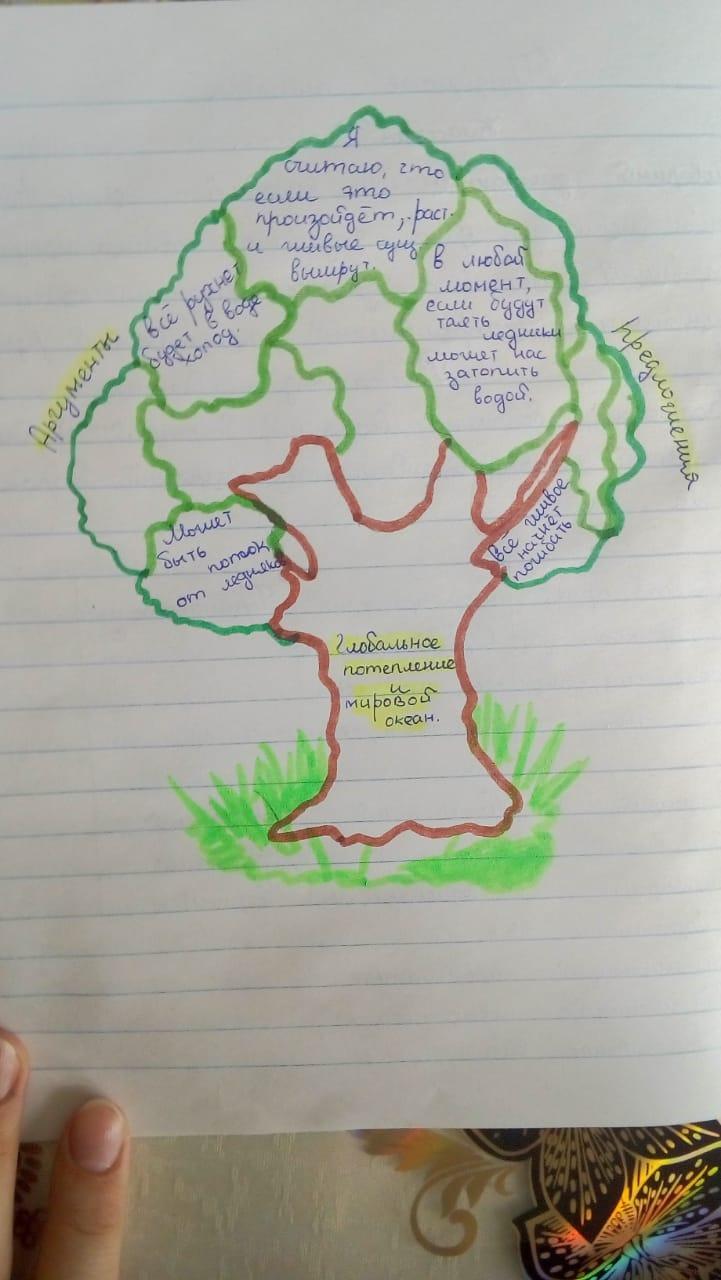 Я
считаю, что
если это
произойдёт, раст.
и живые сущ.
вымрут.
всё рухнет
будет в воде
холод.
В любой
момент,
если будут
таять
ледники
может нас
затопить
водой.
Аргументы
Предложения
Может
быть поток
от ледника
всё живое
начнёт
погибать
Глобальное
потепление
и
мировой
океан.